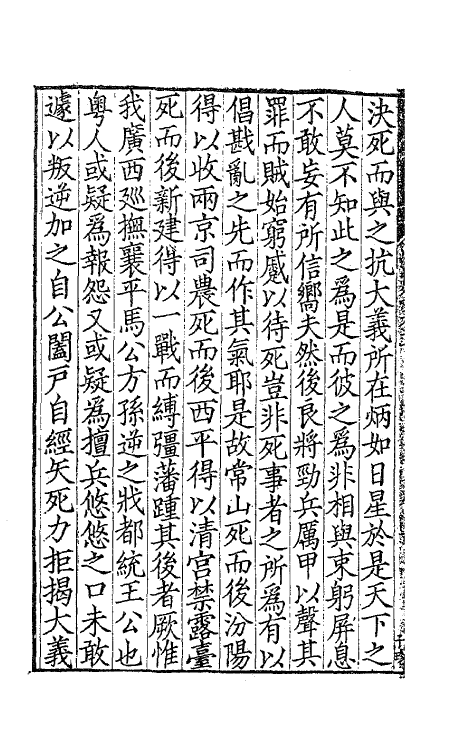 決死而與之抗大義所在炳如日星於是天下之
人莫不知此之為是而彼之為非相與束躬屏息
不敢妄有所信嚮夫然後良將勁兵厲甲以聲其
罪而賊始窮蹙以待死豈非死事者之所為有以
倡戡亂之先而作其氣耶是故常山死而後汾陽
得以收兩京司農死而後西平得以清宮禁露臺
死而後新建得以一戰而縛彊藩踵其後者厥惟
我廣西廵撫襄平馬公方孫逆之戕都統王公也
粵人或疑為報怨又或疑為擅兵悠悠之口未敢
遽以叛逆加之自公闔戸自經矢死力拒揭大義